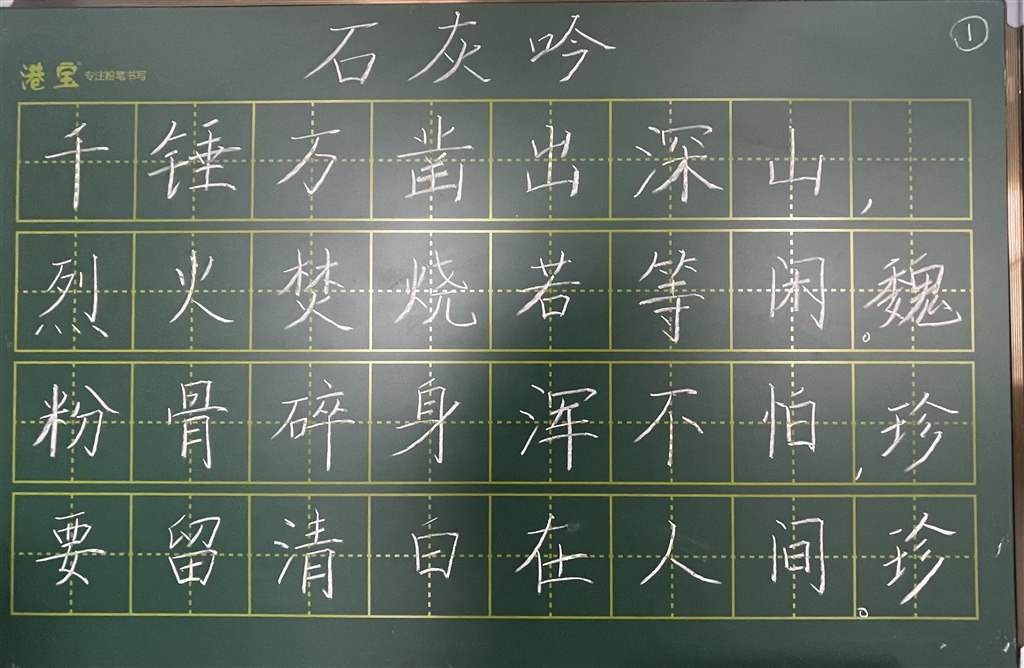 石灰吟
①
港宝 专注粉笔书写
千锤万凿出深山，
烈火焚烧若等闲。魏
粉骨碎身浑不怕，珍
要留清白在人间。珍